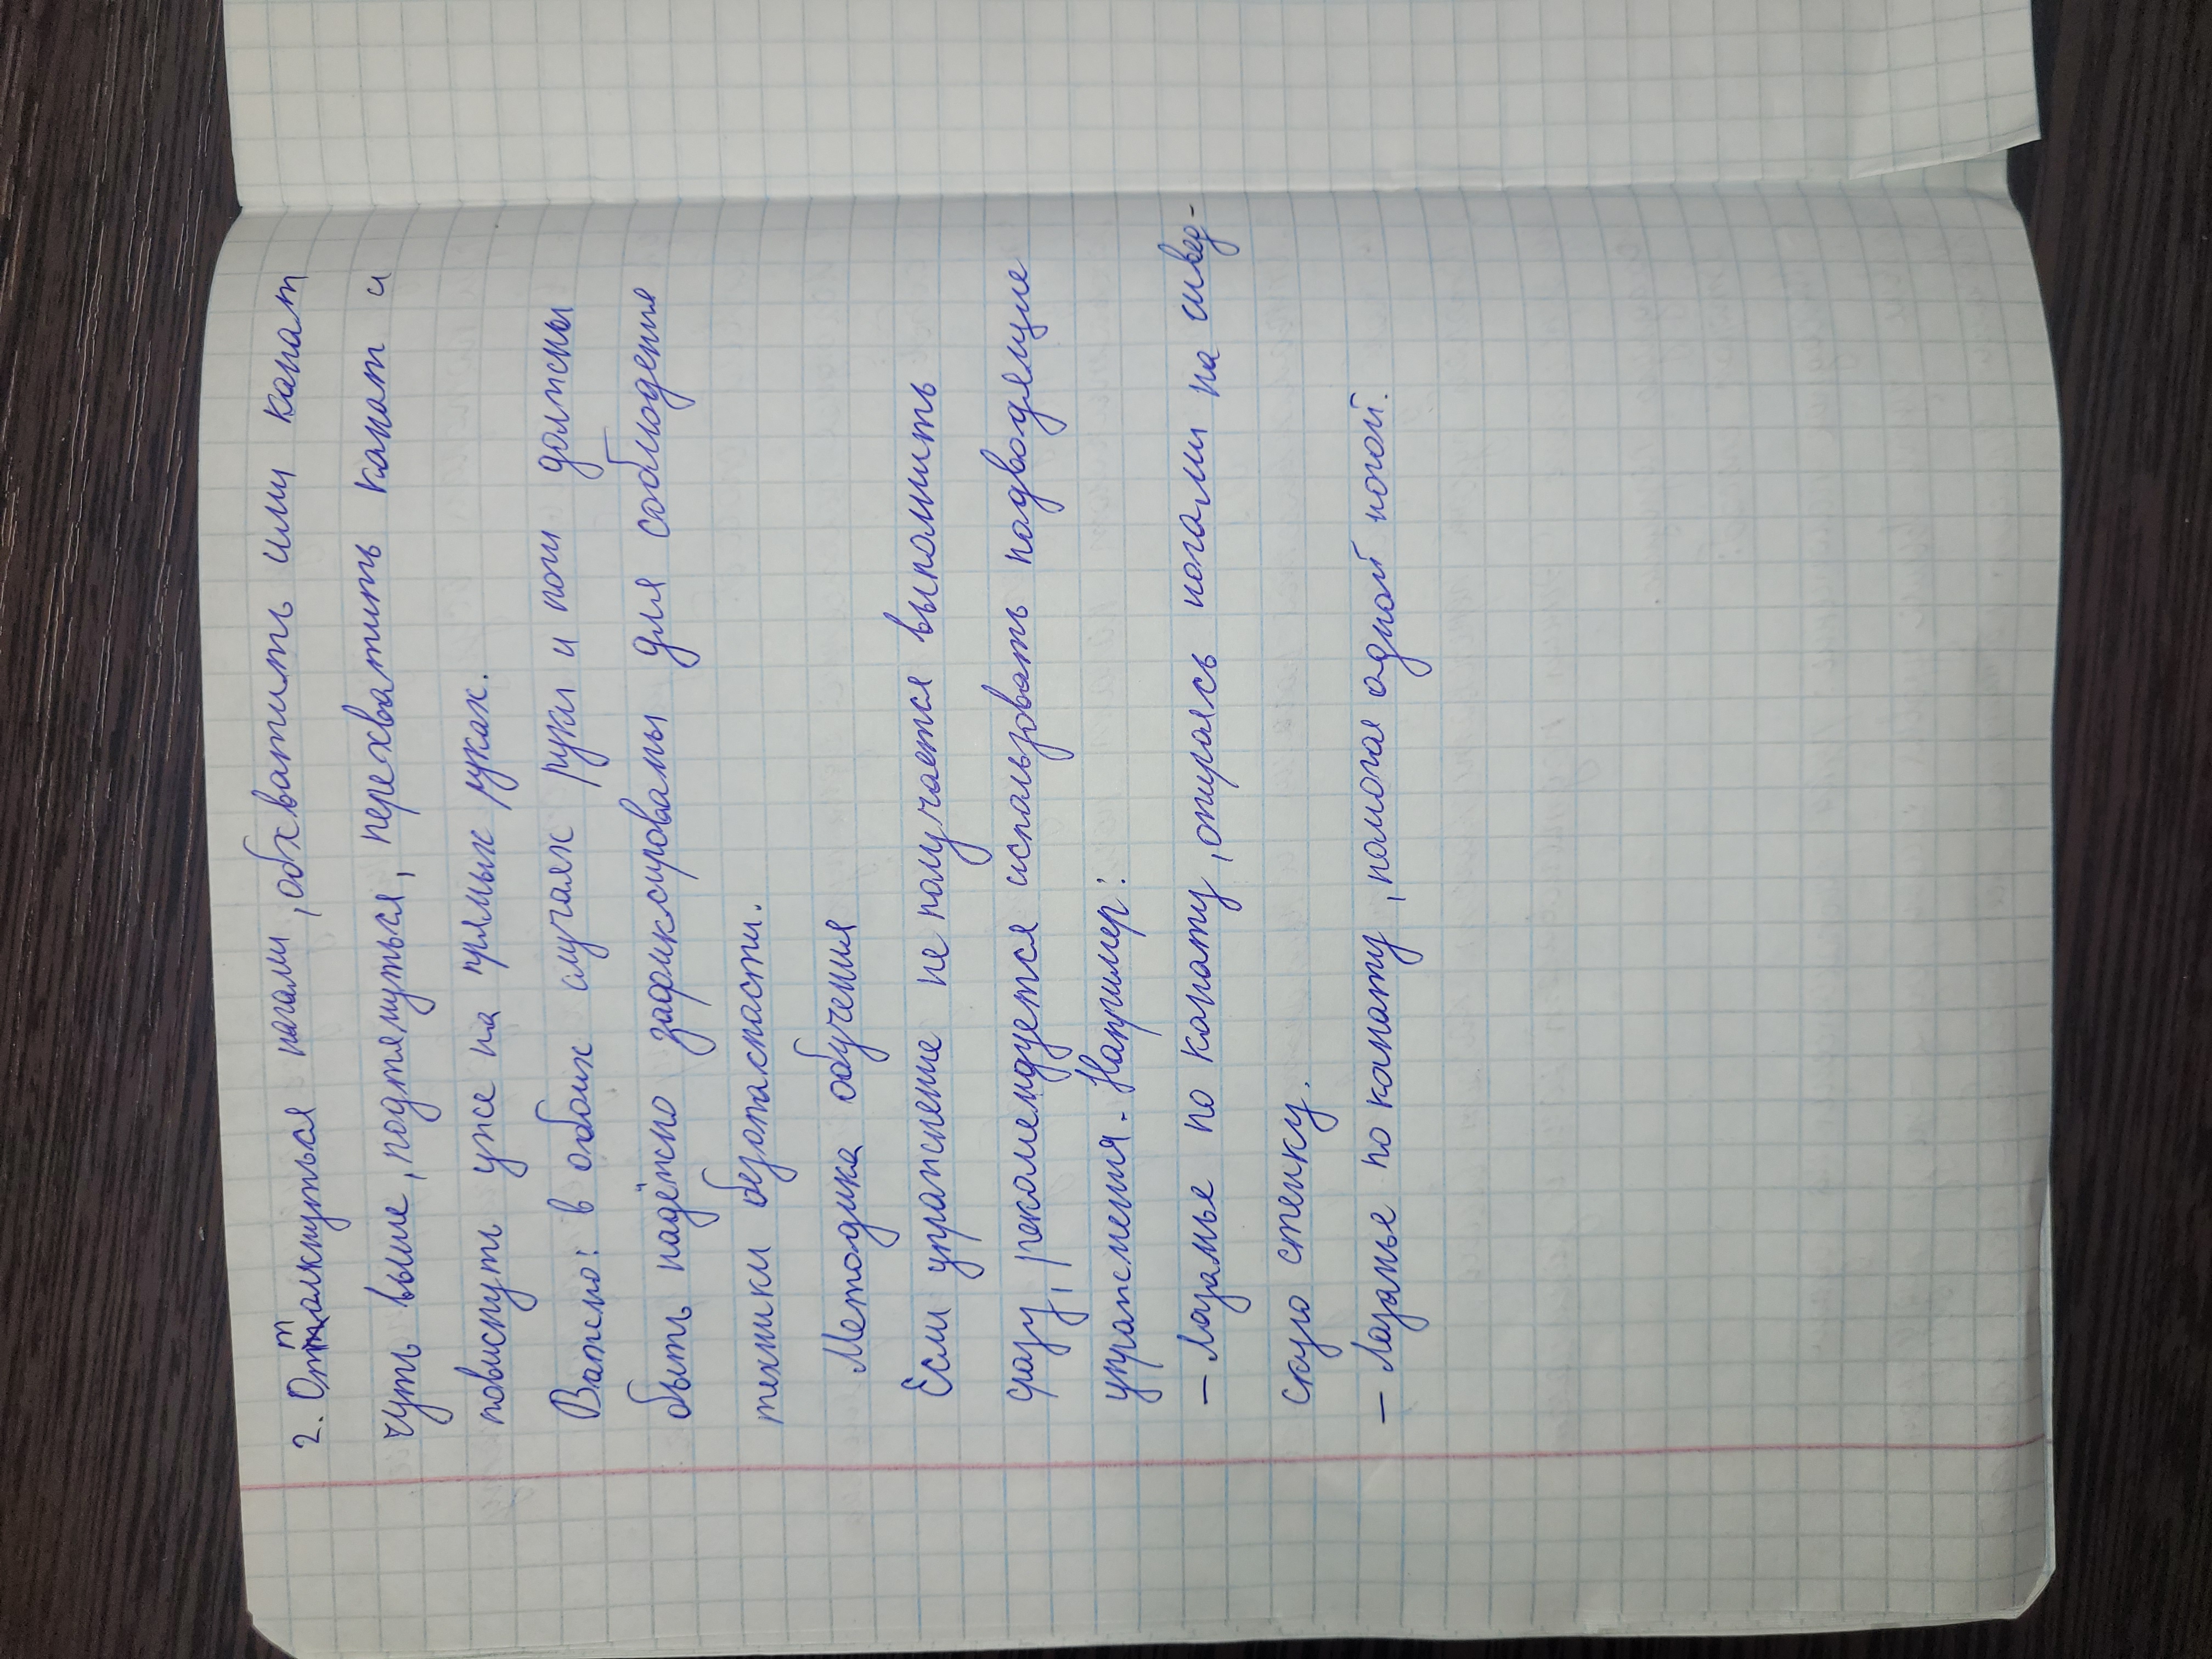 2. Оттолкнуться ногами, обхватить ими канат
чуть выше, подтянуться, перехватить канат и
повиснуть уже на прямых руках.
Важно: в обоих случаях руки и ноги должны
быть надёжно зафиксированы для соблюдения
техники безопасности.
Методика обучения
Если упражнение не получается выполнить
сразу, рекомендуется использовать подводящие
упражнения. Например:
– Лазанье по канату, опираясь ногами на швед-
скую стенку.
– Лазанье по канату, помогая одной ногой.